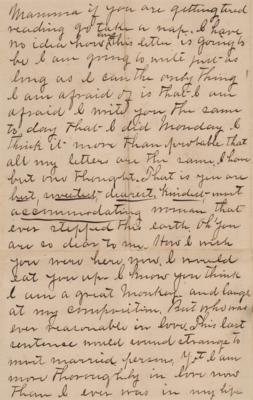 Mamma if you are getting tired
reading go take a nap. I have
no idea how long this letter is going to
be I am going to write just as
long as I can the only thing
I am afraid of is that I am
afraid I write you the same
to day that I did Monday. I
think it more than probable that
all my letters are the same, I have
but one thought. That is you are
best, sweetest, dearest, kindest, most
accommodating woman that
ever stepped this earth, oh you
are so dear to me. How I wish
you were here now, I would
eat you up. I know you think
I am a great Monkey and laugh
at my composition. But who was
ever reasonable in love. This last
sentence would sound strange to
most married persons, yet I am
more thoroughly in love now
than I ever was in my life